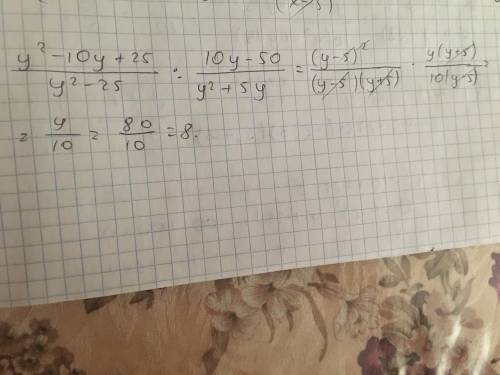 (x-5)
(y² - 10y + 25)/(y² - 25) : (10y - 50)/(y² + 5y) = (y-5)²/((y-5)(y+5)) · y(y+5)/(10(y-5)) =
= y/10 = 80/10 = 8.